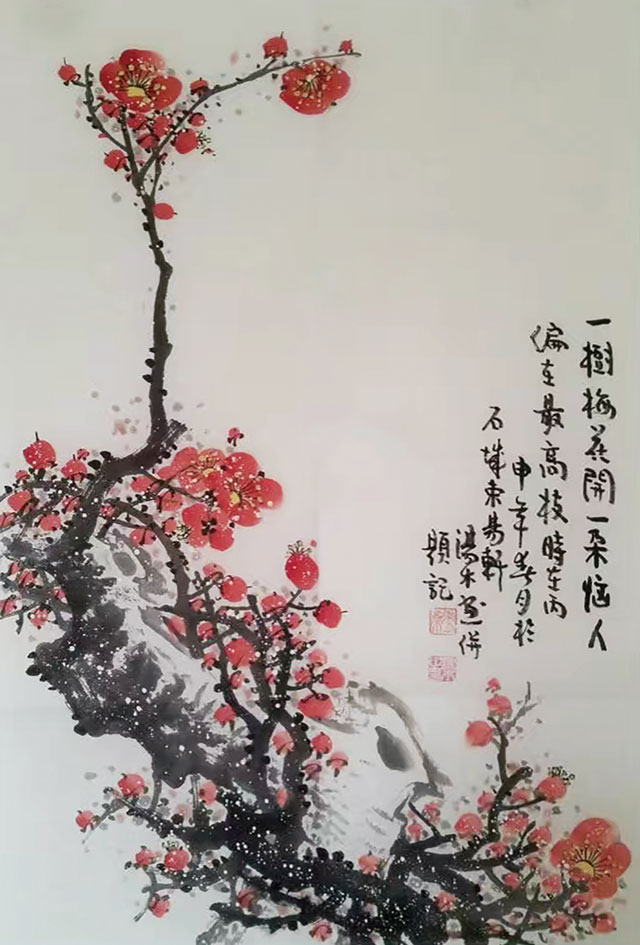 一樹梅花開一朵惱人
偏在最高枝時在丙
申年春月於
石城東易軒
湯併
題記